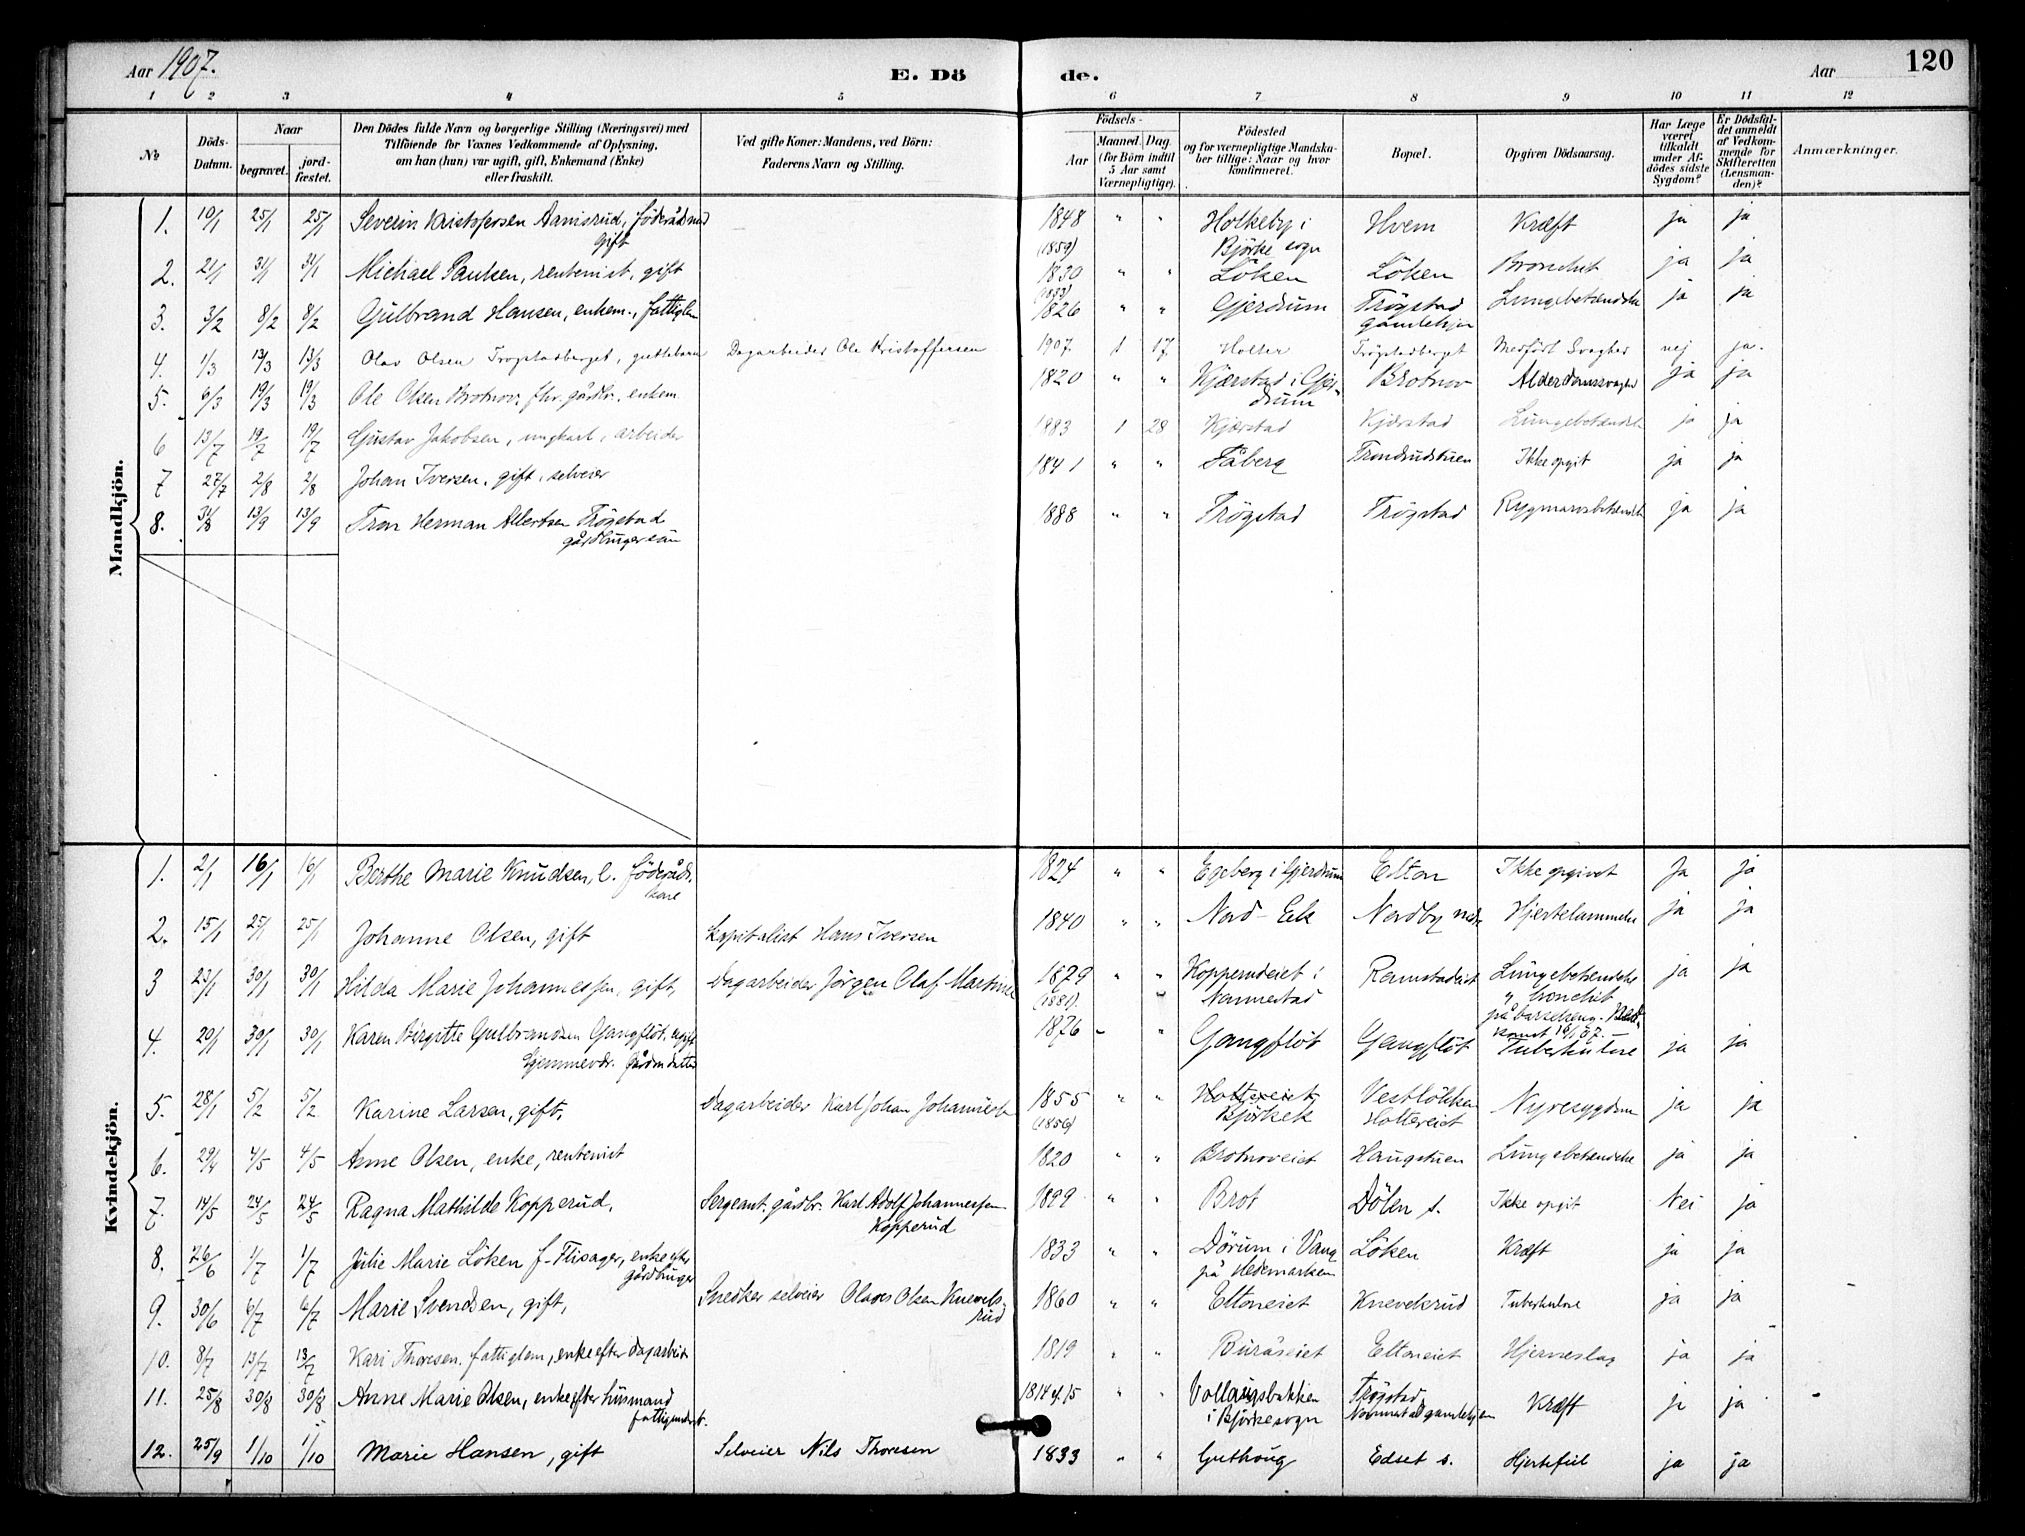 Aar 1907. E. Dö de. Aar 120
1 2 3 4 5 6 7 8 9 10 11 12
No
Döds-Datum.
Naar
begravet.
jord-fæstet.
Den Dödes fulde Navn og borgerlige Stilling (Næringsvei) med
Tilföiende for Voxnes Vedkommende af Oplysning,
om han (hun) var ugift, gift, Enkemand (Enke)
eller fraskilt.
Ved gifte Koner: Mandens, ved Börn:
Faderens Navn og Stilling.
Födsels-
Aar
Maaned. Dag.
(for Börn indtil
5 Aar samt
Værnepligtige).
Födested
og for værnepligtige Mandska-
ber tillige: Naar og hvor
konfirmeret.
Bopæl.
Opgiven Dödsaarsag.
Har Læge
været
tilkaldt
under Af-
dödes sidste
Sygdom?
Er Dödsfal-
det anmeldt
af Vedkom-
mende for
Skifteretten
(Lensman-
den)?
Anmærkninger.
Mandkjön.
1. 10/1 25/1 25/1 Severin Kristofersen Arnisrud, föderådmd gift 1848 " " Holkeby i Björke sogn Hvem Kræft ja ja
2. 21/1 31/1 31/1 Michael Paulsen, rentenist, gift (1859) 1830 " " Löken Löken Bronchit ja ja
3. 3/2 8/2 8/2 Gulbrand Hansen, enkem., fattiglem 1826 " " Gjerdum Trögstad gamlehjem Lungebetændelse ja ja
4. 1/3 13/3 13/3 Olav Olsen Trögstadberget, guttebarn Dagarbeider Ole Kristoffersen 1907. 1 17. Holter Trögstadberget Medfödt Svaghed nej ja.
5. 6/3 19/3 19/3 Ole Olsen Brotnov, fhv. gårdbr., enkem. 1820 " " Kjærstad i Gjerdrum Brotnov Alderdomssvaghed ja ja
6 13/7 19/7 19/7 Gustav Jakobsen, ungkarl, arbeider 1883 1 28 Kjærstad Kjærstad Lungebetændelse ja ja
7 27/7 2/8 2/8 Johan Iversen, gift, selveier 1841 " " Fåberg Trondrudstuen Ikke opgit ja ja
8. 31/8 13/9 13/9 Tron Herman Albertsen Trögstad gårdbruger sön 1888 " " Trögstad Trögstad Rygmarvsbetændelse ja ja
Kvindekjön.
1. 2/1 16/1 16/1 Berthe Marie Knudsen, e. föderåds kone 1824 " " Egeberg i Gjerdrum Elton Ikke opgivet Ja ja
2. 15/1 25/1 25/1 Johanne Olsen, gift Kapitalist Hans Iversen 1840 " " Nord-Eik Nordby nedr. Hjertelammelse ja ja
3 23/1 30/1 30/1 Hilda Marie Johannessen, gift, Dagarbeider Jörgen Olaf Martinsen 1879 (1881) " " Kopperudeiet i Nannestad Ramstadeiet Lungebetændelse " bronchit på barselseng. ja ja
4. 20/1 30/1 30/1 Karen Birgitte Gulbrandsen Gangflöt, ugift hjemmevær. Gårdm datter 1876 " " Gangflöt Gangflöt Tuberkulose ja ja
5. 28/1 5/2 5/2 Karine Larsen, gift, Dagarbeider Karl Johan Johannesen 1855 (1856) " " Holtereiet Björkek Vestlökken Holtereiet Nyresygdom ja ja
6. 29/4 4/5 4/5 Anne Olsen, enke, rentenist 1820 " " Brotnoveiet Haugstuen Lungebetændelse ja ja
7. 14/5 24/5 24/5 Ragna Mathilde Kopperud, Sergeant, gårdbr. Karl Adolf Johannessen Kopperud 1899 " " Brot Dölen s. Ikke opgit Nei ja
8. 26/6 1/7 1/7 Julie Marie Löken f. Flisager, enke efter gårdbruger 1833 " " Dörum i Vang på Hedemarken Löken Kræft ja ja
9. 30/6 6/7 6/7 Marie Svendsen, gift, Snedker selveier Olaves Olsen Knevelsrud 1860 " " Eltoneiet Knevelsrud Tuberkulose ja ja
10. 8/7 13/7 13/7 Kari Thoresen, fattiglem, enke efter dagarbeid 1819 " " Buråseiet Eltoneiet Hjerneslag ja ja
11. 25/8 30/8 30/8 Anne Marie Olsen, enke efter husmand fattigunderst. 1814 el. 15 " " Vollaugsbakken i Björkesogn Trögstad Nannestad gamlehjem Kræft ja ja
12. 25/9 1/10 1/10 Marie Hansen, gift Selveier Nils Thoresen 1833 " " Guthoug Edset s. Hjertefeil ja ja